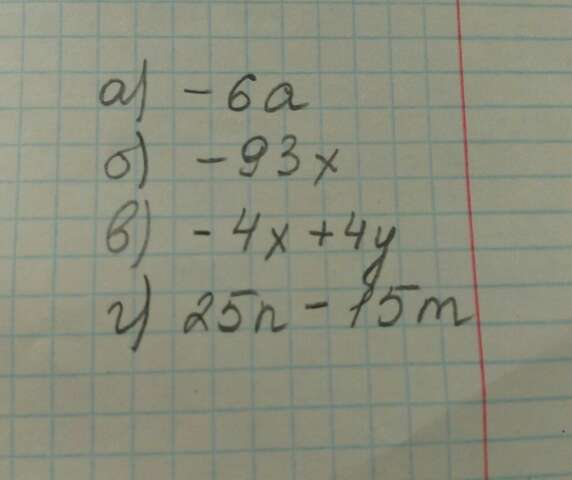 а) -6a
б) -93x
в) -4x+4y
г) 25n-15m